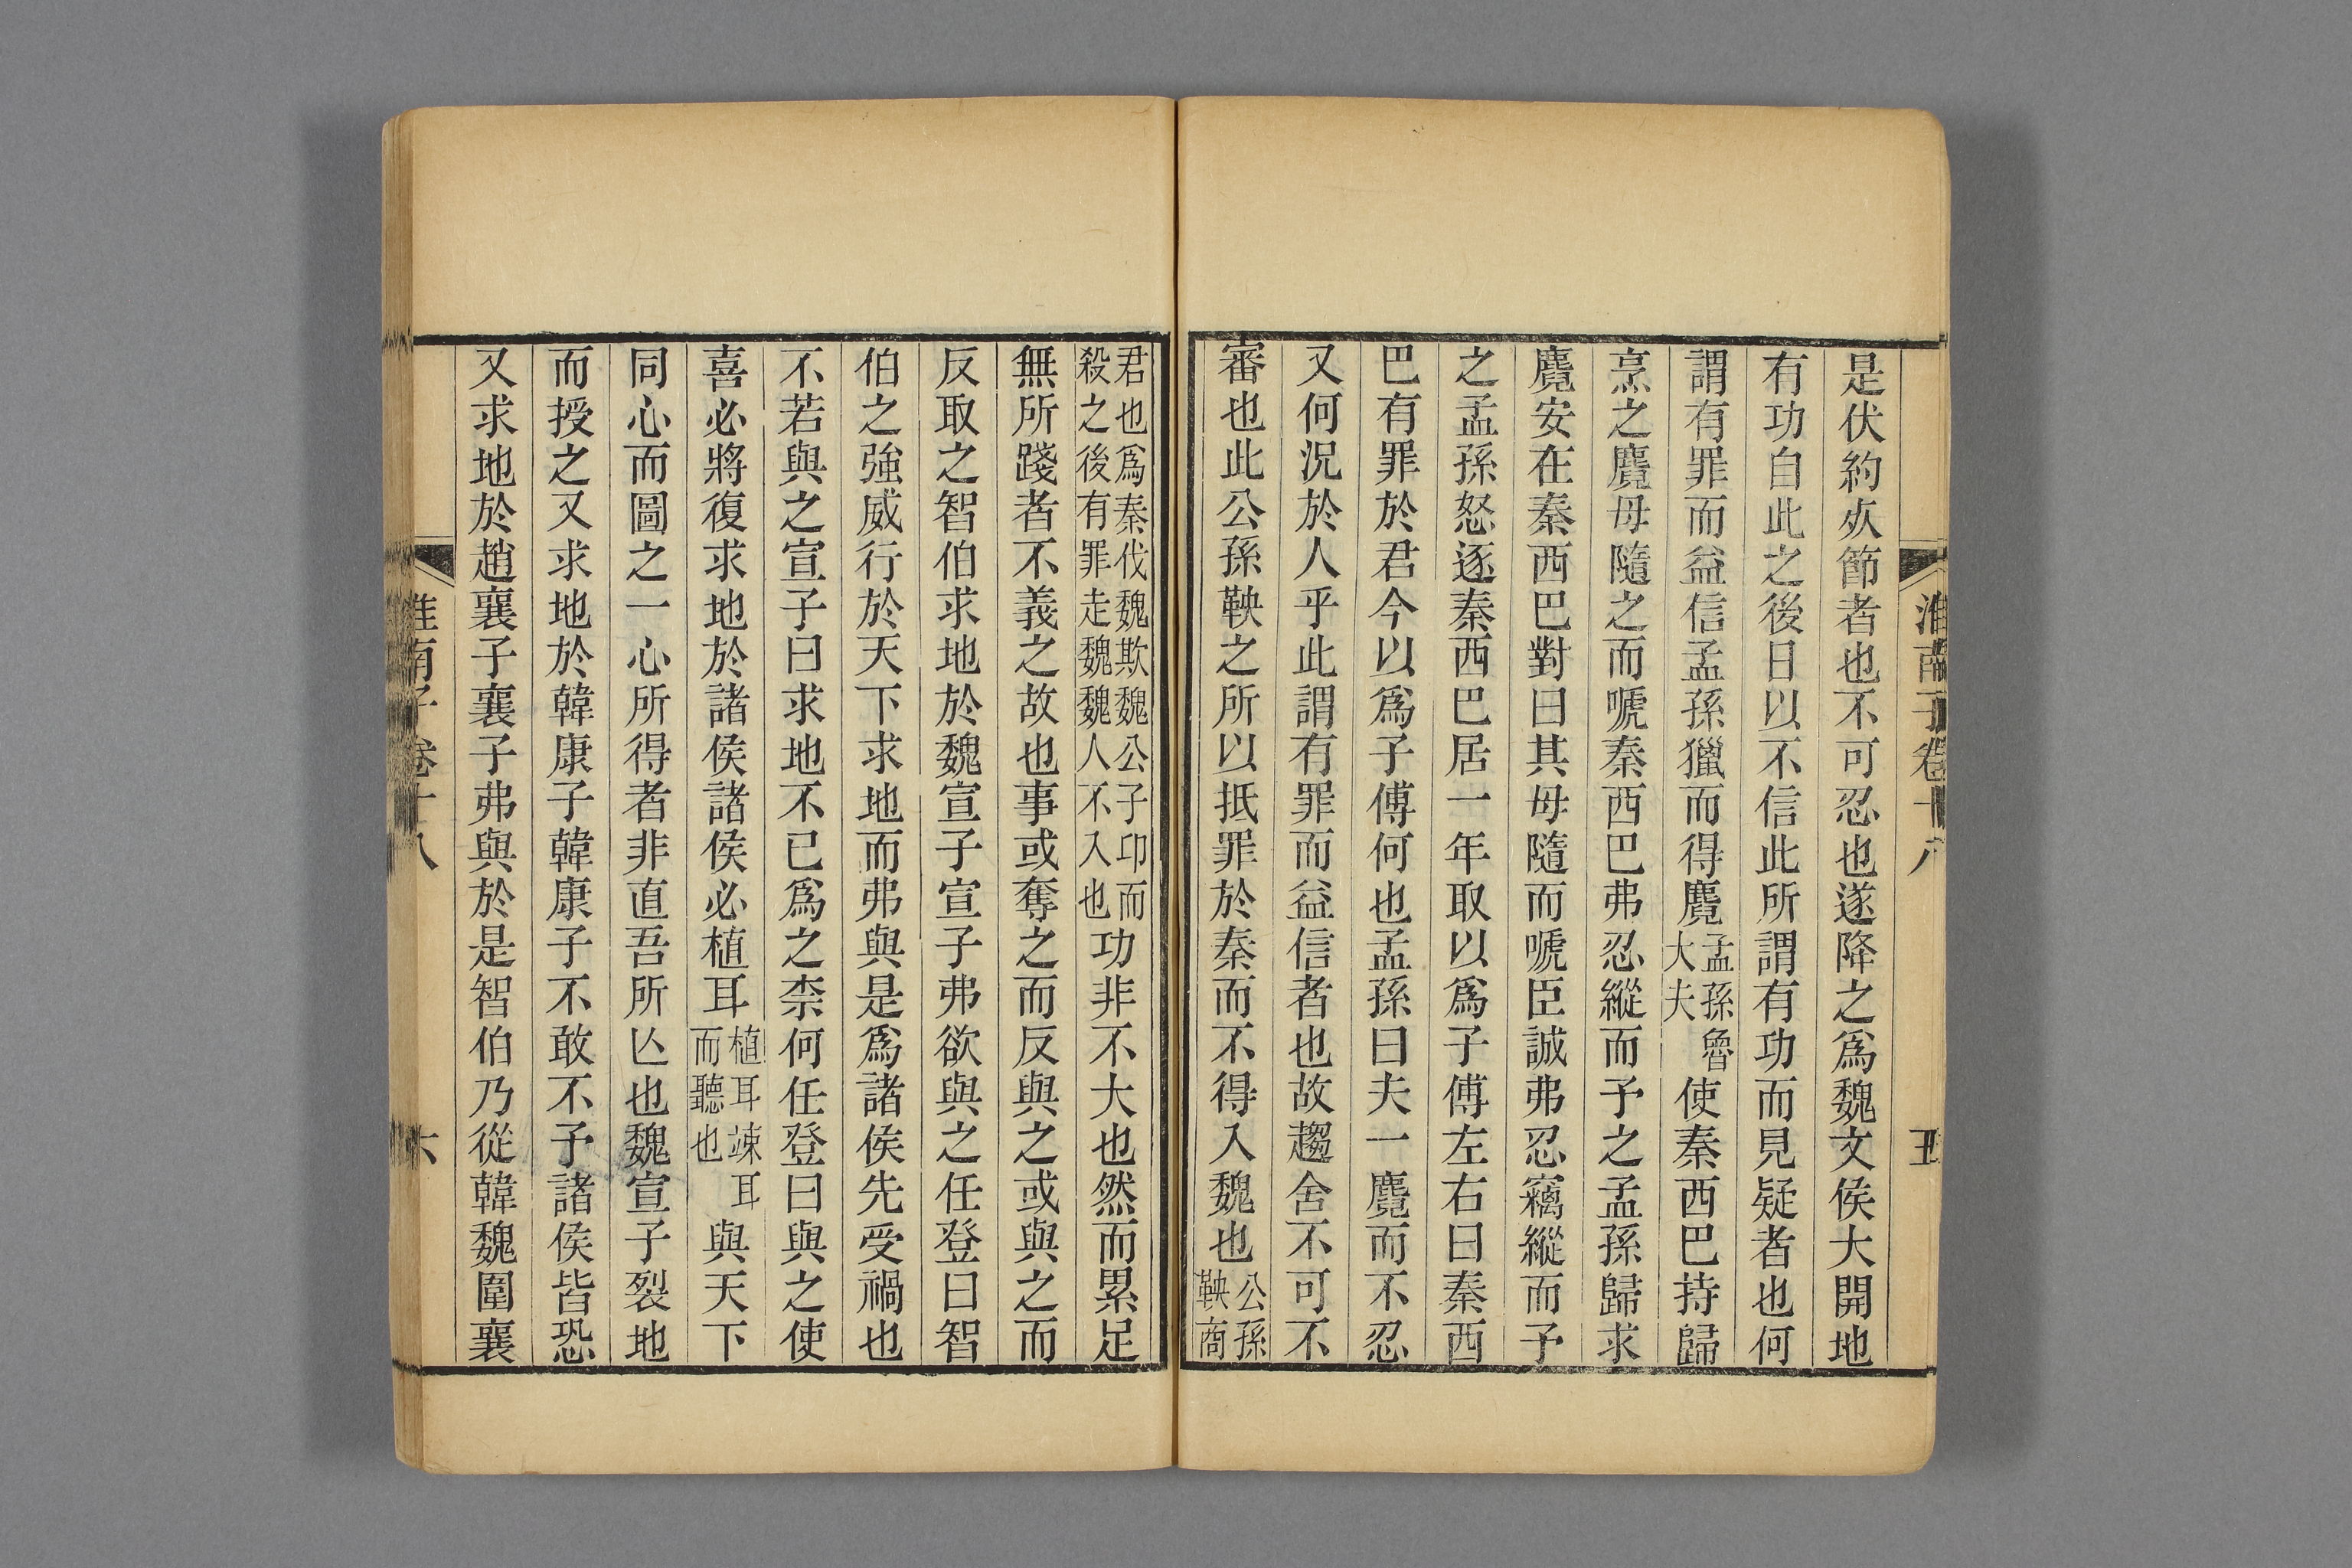 淮南子卷十八 五
是伏約㱙節者也不可忍也遂降之爲魏文侯大開地
有功自此之後日以不信此所謂有功而見疑者也何
謂有罪而益信孟孫獵而得麑孟孫魯大夫使秦西巴持歸
烹之麑母隨之而嗁秦西巴弗忍縱而予之孟孫歸求
麑安在秦西巴對曰其母隨而嗁臣誠弗忍竊縱而予
之孟孫怒逐秦西巴居一年取以爲子傅左右曰秦西
巴有罪於君今以爲子傅何也孟孫曰夫一麑而不忍
又何況於人乎此謂有罪而益信者也故趨舍不可不
審也此公孫鞅之所以抵罪於秦而不得入魏也公孫鞅商
君也爲秦伐魏欺魏公子卬而殺之後有罪走魏魏人不入也功非不大也然而累足
無所踐者不義之故也事或奪之而反與之或與之而
反取之智伯求地於魏宣子宣子弗欲與之任登曰智
伯之強威行於天下求地而弗與是爲諸侯先受禍也
不若與之宣子曰求地不已爲之柰何任登曰與之使
喜必將復求地於諸侯諸侯必植耳植耳竦耳而聽也與天下
同心而圖之一心所得者非直吾所亾也魏宣子裂地
而授之又求地於韓康子韓康子不敢不予諸侯皆恐
又求地於趙襄子襄子弗與於是智伯乃從韓魏圍襄
淮南子卷十八 六